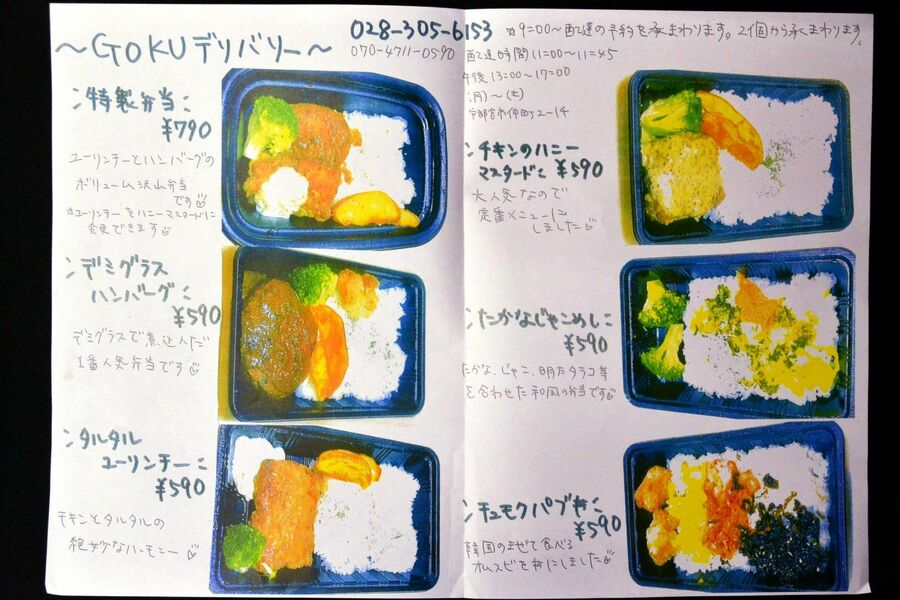 ～GOKUデリバリー～
028-305-6153
070-4711-0590
※9:00～配達の予約を承まわります。2個から承くまわります。
配達時間11:00～11:45
午後 13:00～17:00
(月)～(土)
宇都宮市仲町2-14
特製弁当
¥790
ユーリンチーとハンバーグの
ボリューム沢山弁当
です
※ユーリンチーをハニーマスタードに
変更できます
デミグラス
ハンバーグ
¥590
デミグラスで煮込んだ
1番人気弁当です
タルタル
ユーリンチー
¥590
チキンとタルタルの
絶妙なハーモニー
チキンのハニー
マスタード ¥590
大人気なので
定番メニューに
しました
たかなじゃこめし
¥590
たかな、じゃこ、明太タラコ等
を合わせた和風の弁当です
チュモクパプ
¥590
韓国のまぜて食べる
オムスビを丼にしました